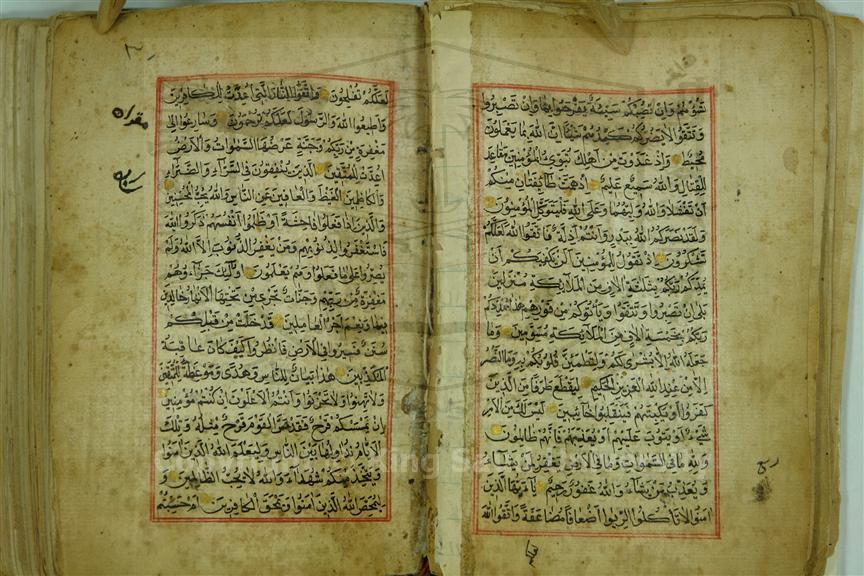 تسؤهم وان تصبكم سيئة يفرحوا بها وان تصبروا
وتتقوا لا يضركم كيدهم شيئا ان الله بما يعملون
محيط واذ غدوت من اهلك تبوئ المؤمنين مقاعد
للقتال والله سميع عليم اذ همت طائفتان منكم
ان تفشلا والله وليهما وعلى الله فليتوكل المؤمنون
ولقد نصركم الله ببدر وانتم اذلة فاتقوا الله لعلكم
تشكرون اذ تقول للمؤمنين الن يكفيكم ان
يمدكم ربكم بثلثة الاف من الملائكة منزلين
بلى ان تصبروا وتتقوا وياتوكم من فورهم هذا يمددكم
ربكم بخمسة الاف من الملائكة مسومين وما
جعله الله الا بشرى لكم ولتطمئن قلوبكم به وما النصر
الا من عند الله العزيز الحكيم ليقطع طرفا من الذين
كفروا او يكبتهم فينقلبوا خائبين ليس لك من الامر
شيء او يتوب عليهم او يعذبهم فانهم ظالمون
ولله ما في السموات وما في الارض يغفر لمن يشاء
ويعذب من يشاء والله غفور رحيم يا ايها الذين
امنوا لا تاكلوا الربوا اضعافا مضاعفة واتقوا الله
لعلكم
لعلكم تفلحون واتقوا النار التي اعدت للكافرين
واطيعوا الله والرسول لعلكم ترحمون وسارعوا الى
مغفرة من ربكم وجنة عرضها السموات والارض
اعدت للمتقين الذين ينفقون في السراء والضراء
والكاظمين الغيظ والعافين عن الناس والله يحب المحسنين
والذين اذا فعلوا فاحشة او ظلموا انفسهم ذكروا الله
فاستغفروا لذنوبهم ومن يغفر الذنوب الا الله ولم
يصروا على ما فعلوا وهم يعلمون اولئك جزاؤهم
مغفرة من ربهم وجنات تجري من تحتها الانهار خالدين
فيها ونعم اجر العاملين قد خلت من قبلكم
سنن فسيروا في الارض فانظروا كيف كان عاقبة
المكذبين هذا بيان للناس وهدى وموعظة للمتقين
ولا تهنوا ولا تحزنوا وانتم الاعلون ان كنتم مؤمنين
ان يمسسكم قرح فقد مس القوم قرح مثله وتلك
الايام نداولها بين الناس وليعلم الله الذين امنوا
ويتخذ منكم شهداء والله لا يحب الظالمين و
ليمحص الله الذين امنوا ويمحق الكافرين ام حسبتم